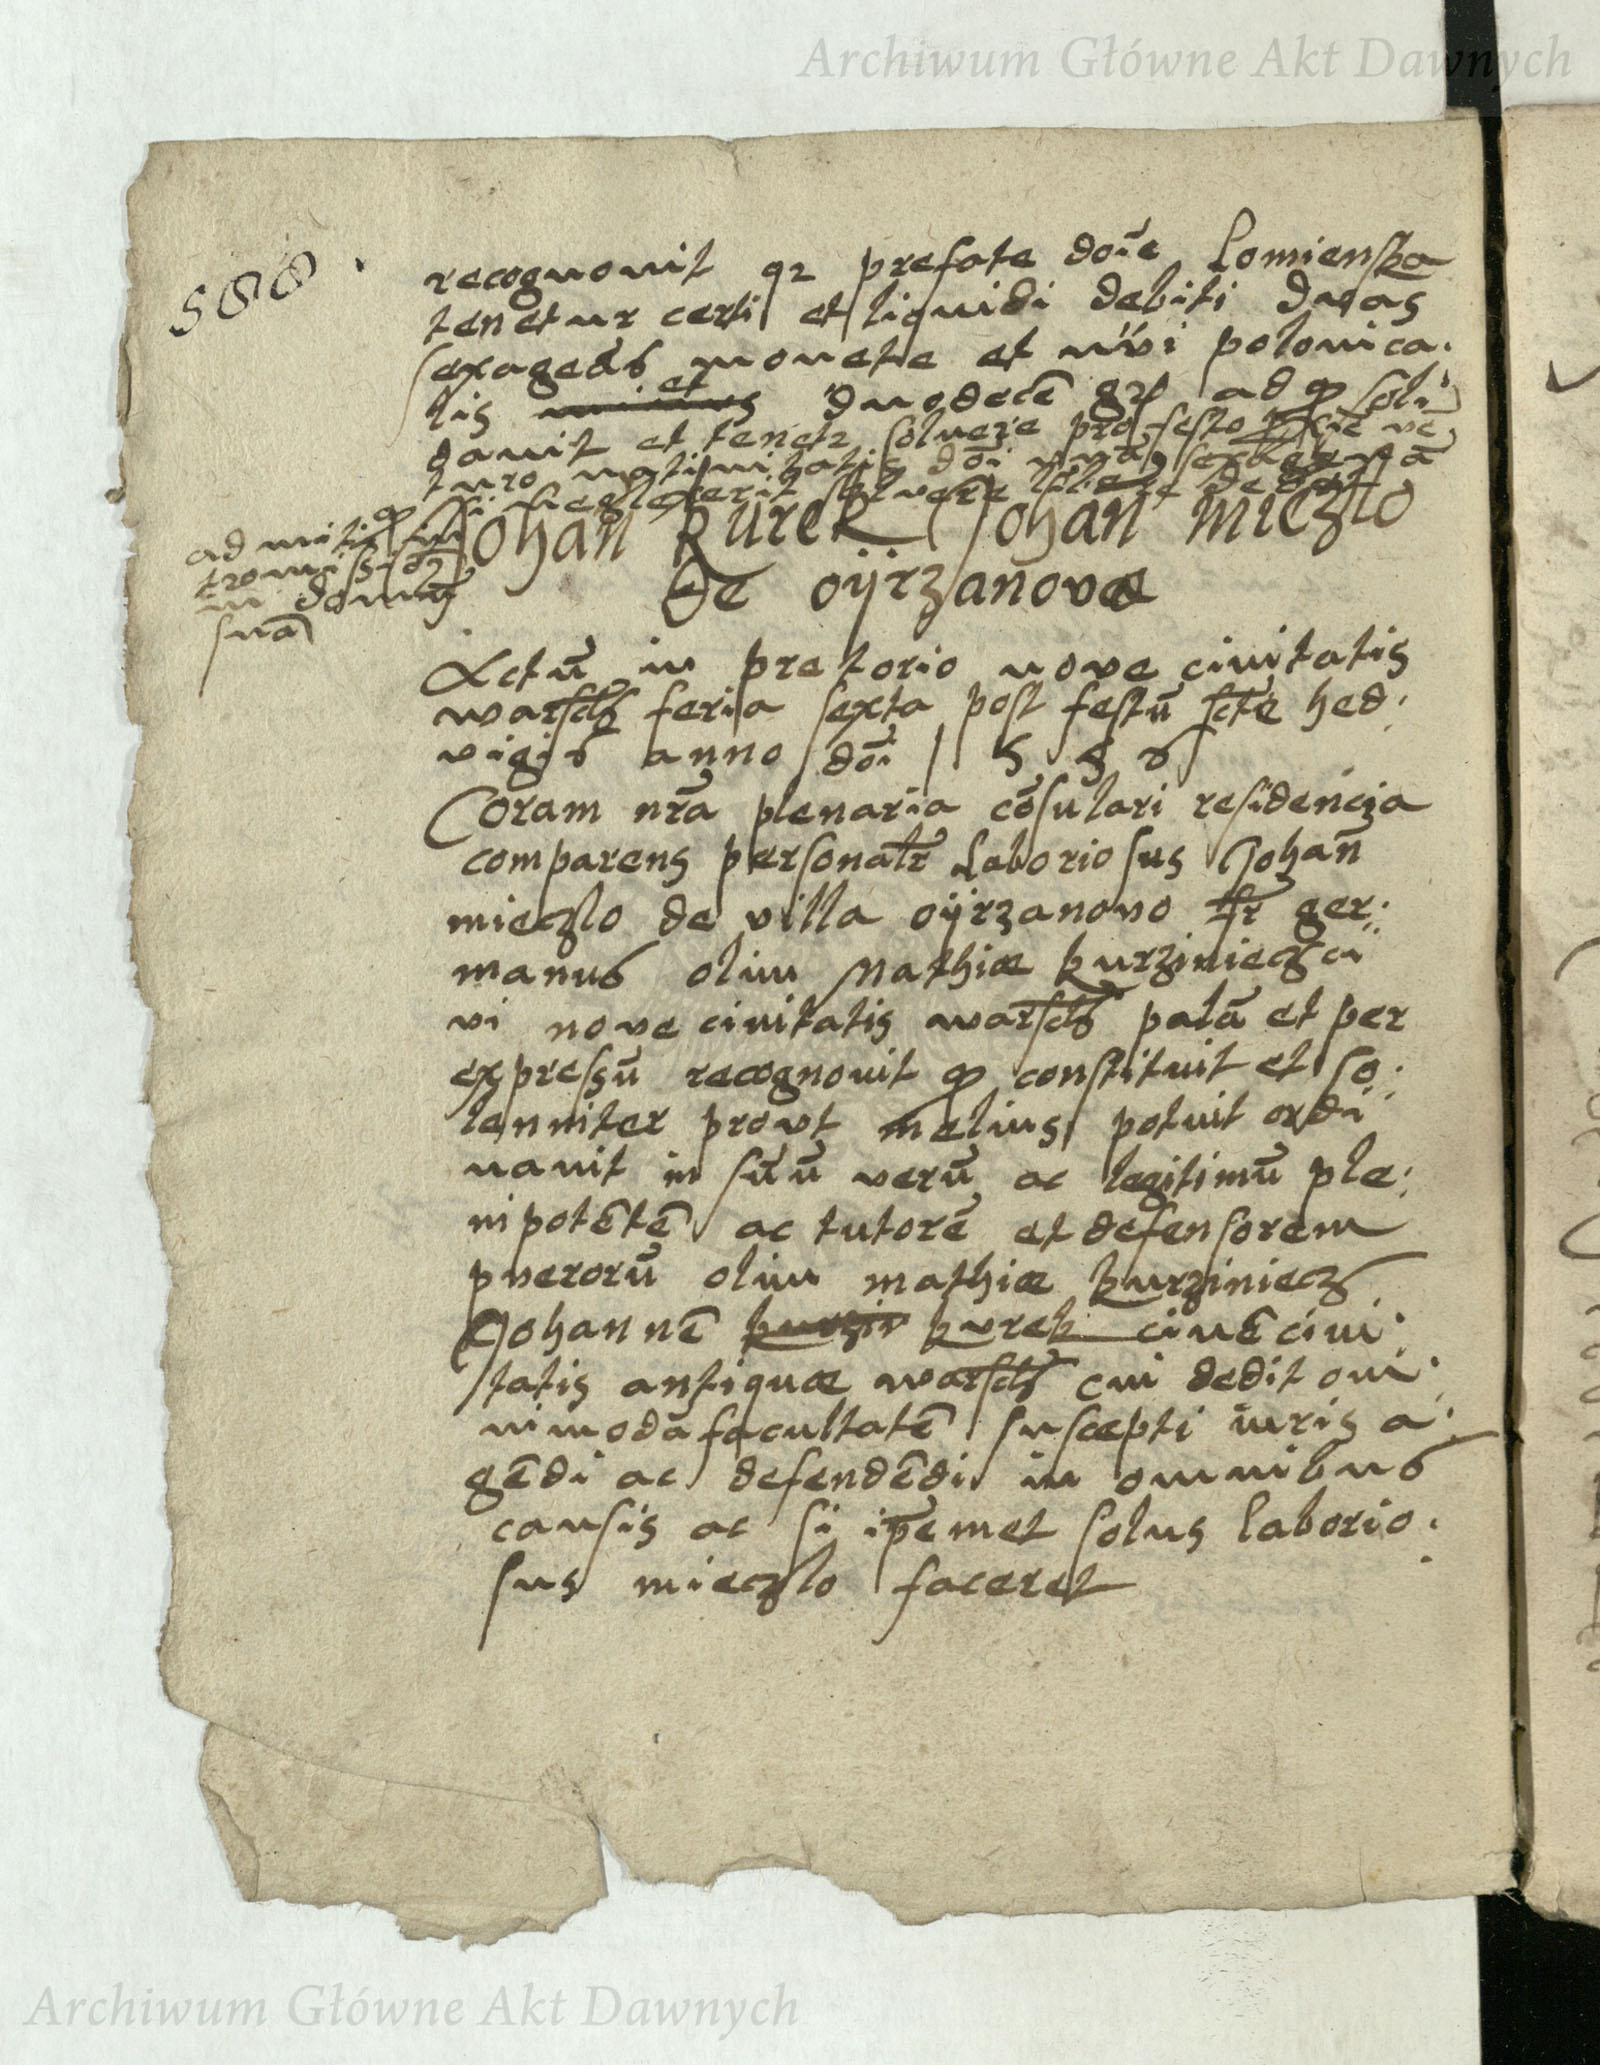 Archiwum Główne Akt Dawnych
588
recognovit qz prefate doīe Lomienska
tenetur certi et liquidi debiti duas
sexagenas monete et nūi polonica.
lis et duodecē grs ad qd soli
davit et tenetr solvere pro festo ve
turo nativitatis dōi unā sexagenā
si neglexerit solvere
admitti in
tromissionē
in domū
suā
Johan Kurek Johan Mieczlo
de oÿrzanovo
Actū in pretorio nove civitatis
warsch feria sexta post festū scte hed:
vigis anno dōi 1558
Coram nrā plenaria cōsulari residencia
comparens personalr Laboriosus Johan
mieczlo de villa oÿrzanovo fr ger:
manus olim Mathiæ kurziniecz ci
vi nove civitatis warsch palā et per
expressū recognovit qd constituit et so:
lenniter prout melius potuit ordi
navit in suū verū ac legitimū ple:
nipotētē ac tutorē et defensorem
puerorū olim mathiæ kurziniecz
Johannē kurzin kurek civē civi:
tatis antiquæ warsch cui dedit om
nimodā facultatē suscepti iuris a:
gēdi ac defendēdi in omnibus
causis ac si ipēmet solus laborio:
sus mieczlo faceret
Archiwum Główne Akt Dawnych